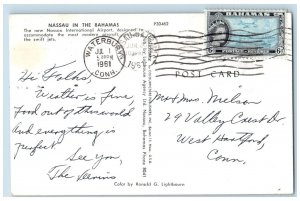 NASSAU IN THE BAHAMAS
The new Nassau International Airport, designed to
accommodate the most modern aircraft
the swift jets.
P30462
WATERBURY
JUL
1961
CONN.
1961
BAHAMAS
POST CARD
Hi Folks!
Weather is fine,
food out of this world
and everything is
perfect.
See you,
The Levins
Mr & Mrs. Nielson
29 Valley Crest Dr.
West Hartford,
Conn.
Color by Ronald G. Lightbourn